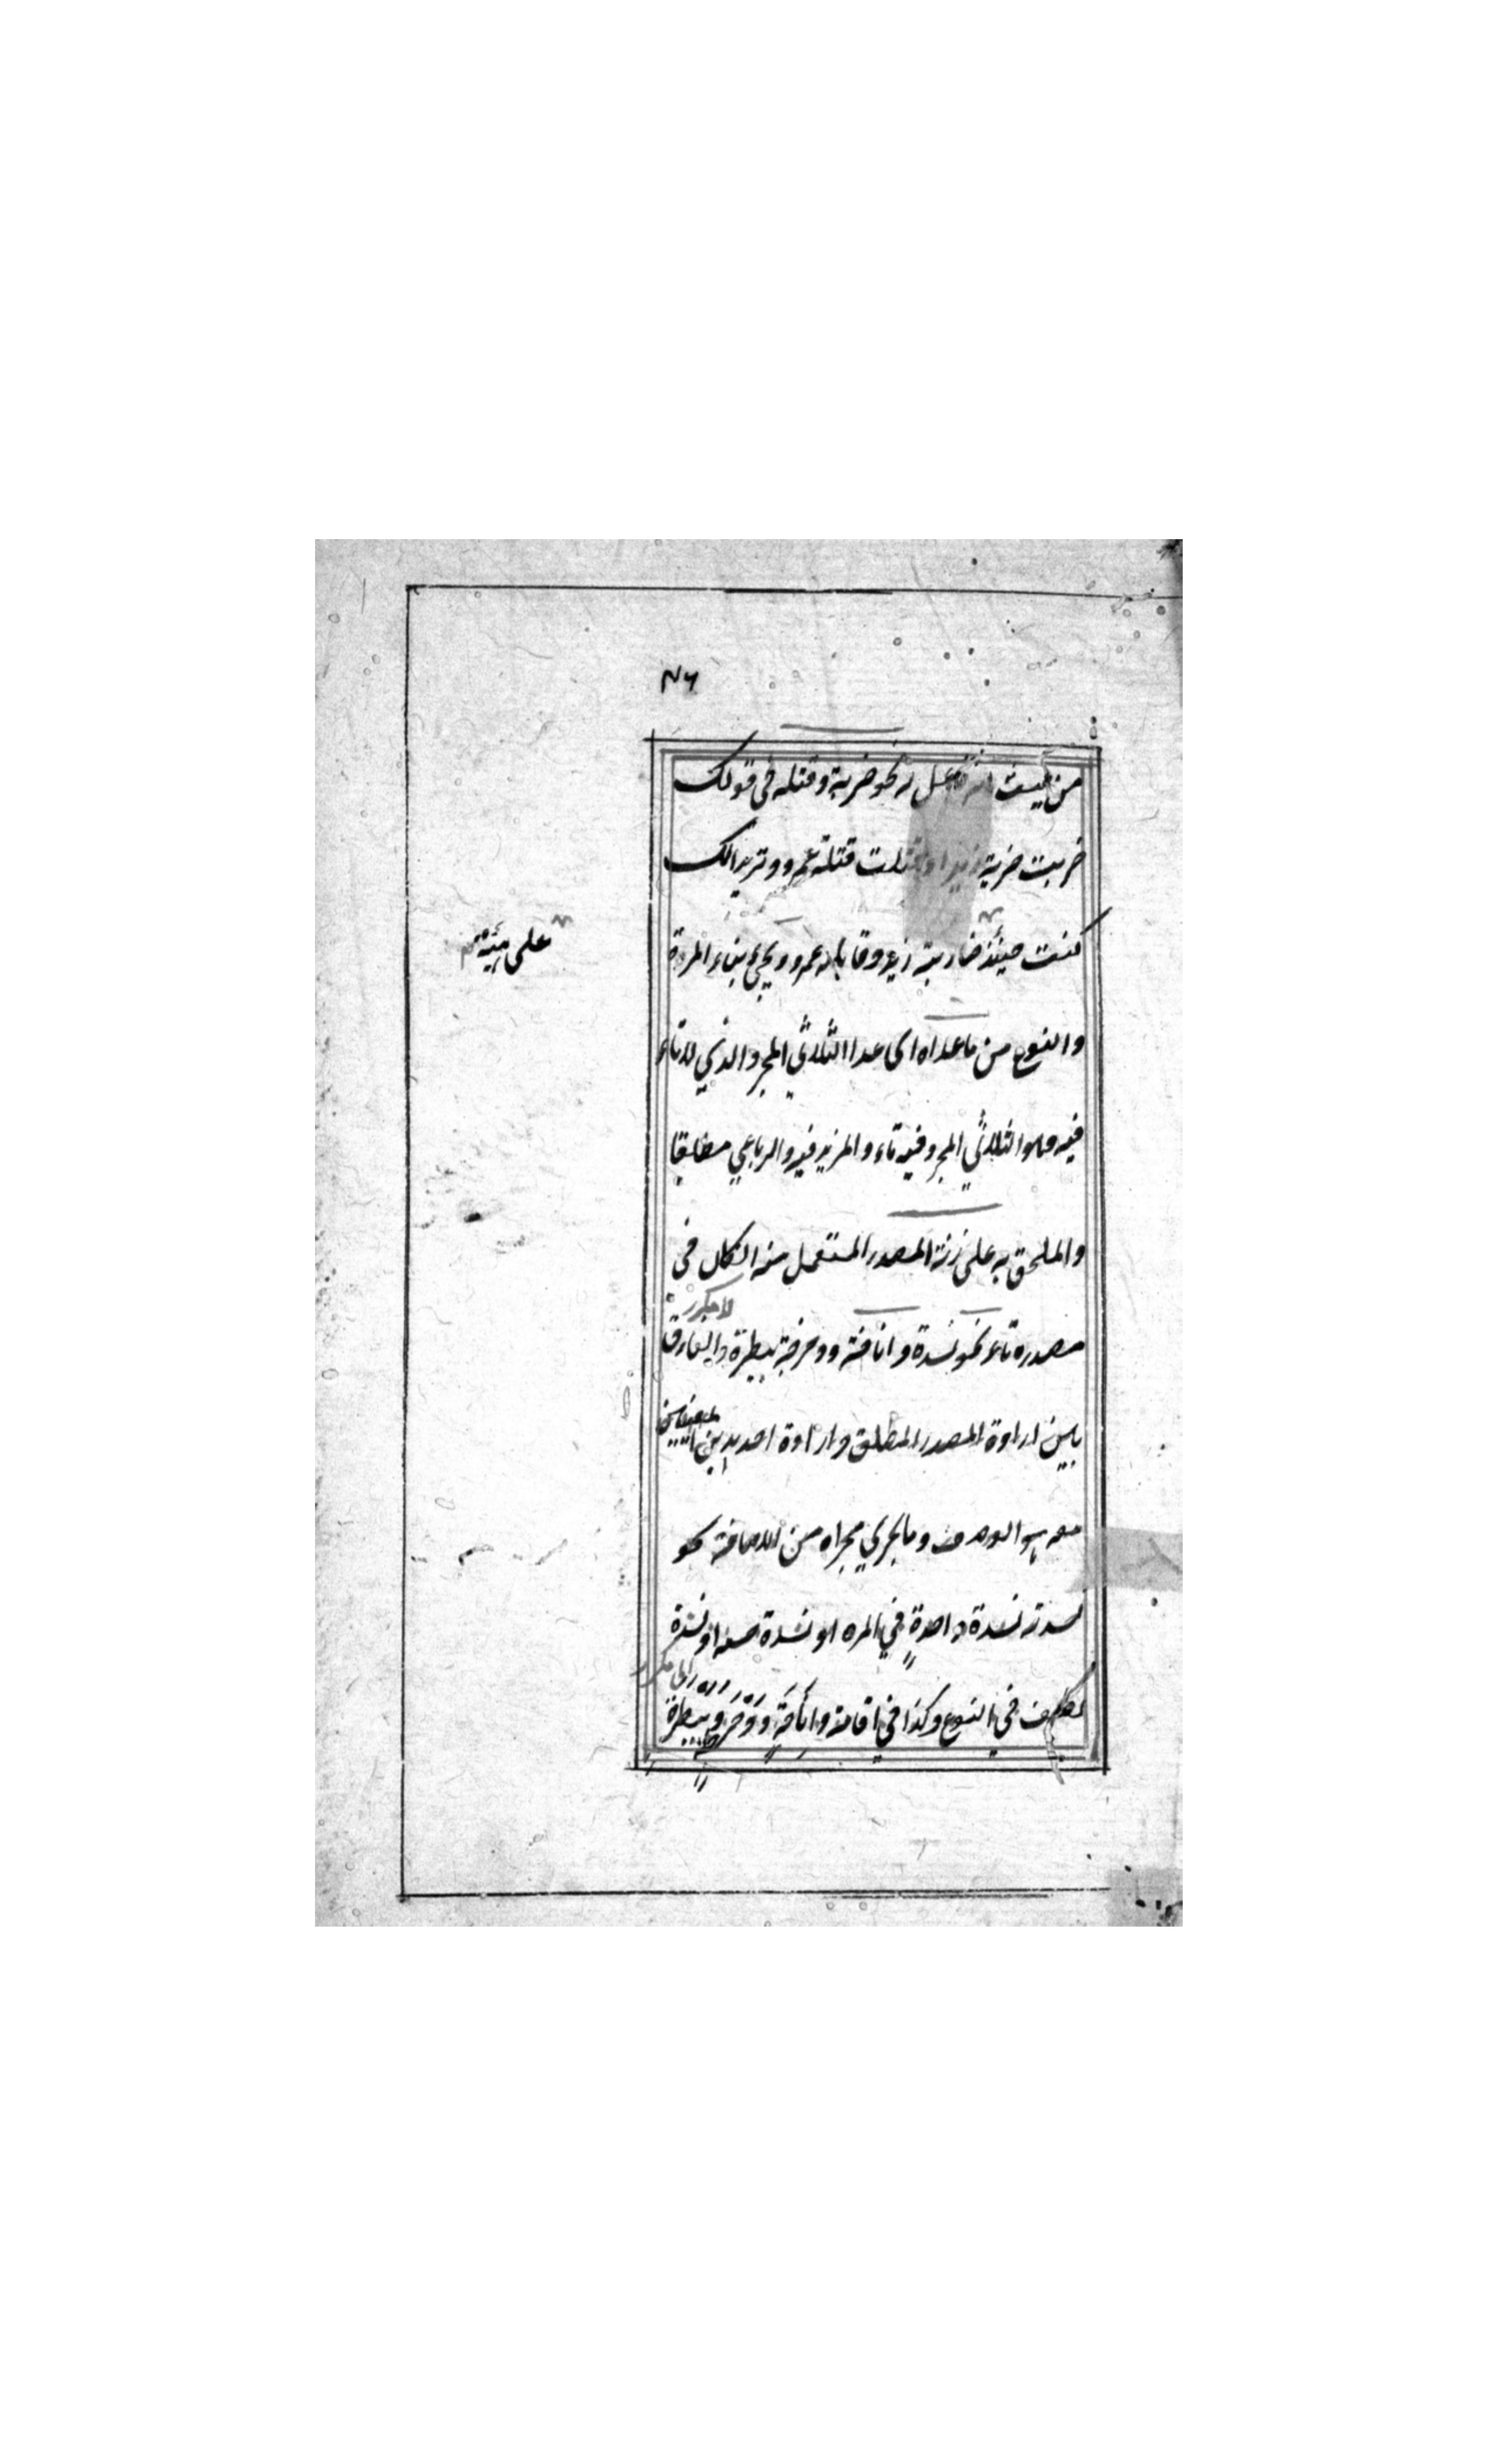 ٢٦
من حيث انه فاعل له نحو ضربة وقتله في قولك
ضربت ضربة زيدا وقتلت قتلة عمرو وتريد انك
كنت حينئذ ضاربة زيد وقا عمرو ويجيء بناء المرة
على هيئة
والنوع من ما عداه اى عدا الثلاثي المجرد الذي لا تاء
فيه وهو الثلاثي المجرد فيه تاء والمزيد فيه والرباعي مطلقا
والملحق به على زنة المصدر المستعمل منه ان كان في
لا مكرر
مصدره تاء نحو نشدة و ودحرجة بيطرة والفارق
بين ارادة المصدر المطلق وارادة احد بدين
هو الوصف وما يجري مجراه من الاضافة نحو
نشدته نشدة واحدة في المره او نشدة حسنه او نشدة
في النوع وكذا في اقامة و وبيطرة